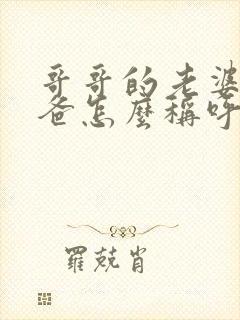 哥哥的老婆
爸怎麼稱呼
羅兢肖